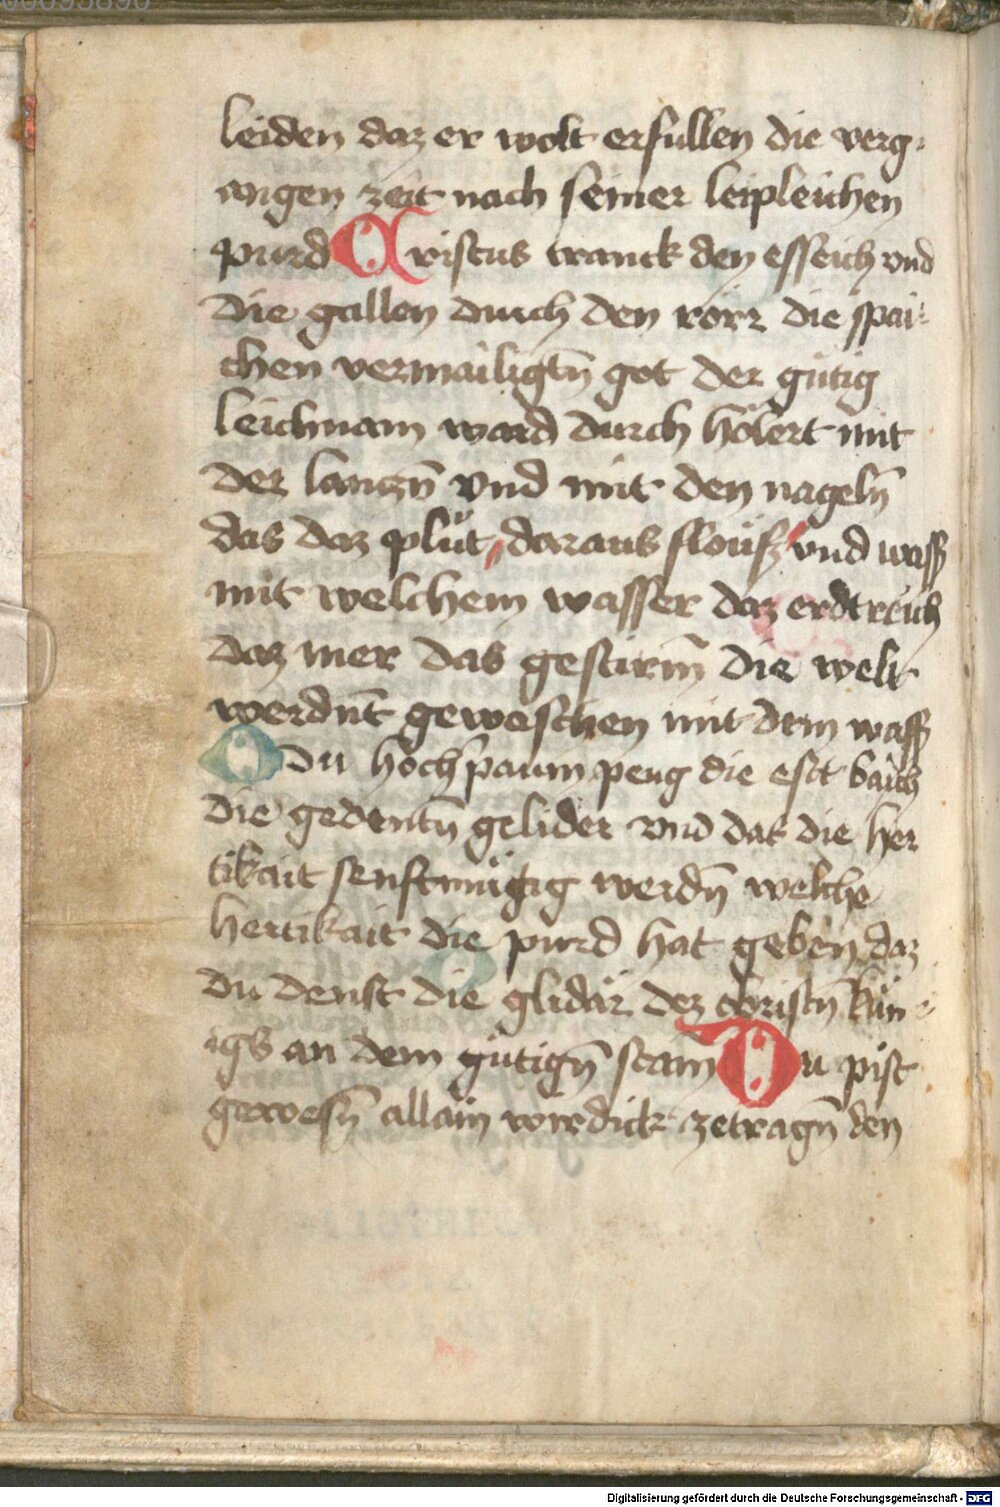 00095890
leiden daz er wolt erfullen die verg⸗
angen zeit nach seiner leipleichen
purd Cristus tranck den esseich vnd
die gallen durch den rorr die spai⸗
chen vermailigtn̄ got der gütig
leichnam ward durch hölert mit
der lanzn̄ vnd mit den nageln̄
das daz plüt daraus flouſz vnd waſſ
mit welchem wasser daz erdtreich
daz mer das gestirm̄ die welt
werdnt̄ geweschen mit dem waſſ
O du hoch paum peug die est baich
die gedentn̄ gelider vnd das die her
tikait senftmütig werdn̄ welche
hertikait die purd hat geben daz
du denst die glidär dez obristn̄ kün⸗
igs an dem gütign̄ stam̄ Du pist
gewesn̄ allain wirdick zetragn̄ den
Digitalisierung gefördert durch die Deutsche Forschungsgemeinschaft - DFG